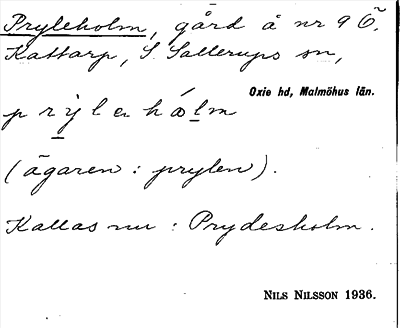 Pryleholm, gård å nr 9 Ö.
Kattarp, S. Sallerups sn,
Oxie hd, Malmöhus län.
prỳleholm
(ägaren : prylen).
Kallas nu : Prydesholm.
NILS NILSSON 1936.